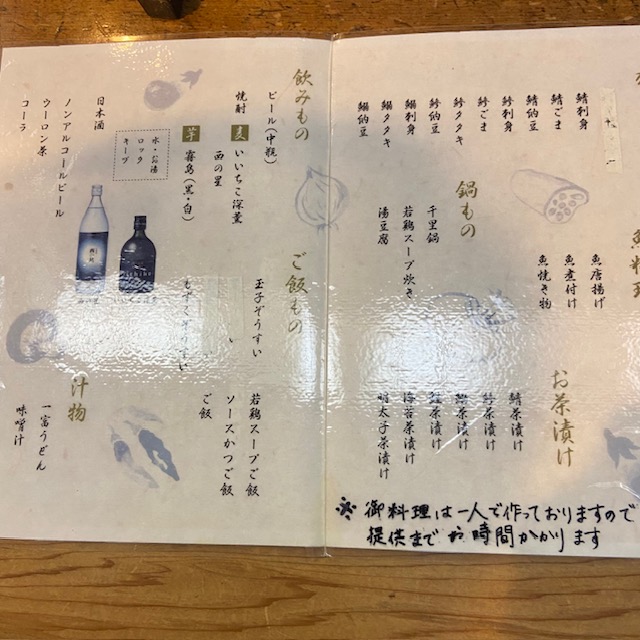 鯖刺身
鯖ごま
鯖納豆
鯵刺身
鯵ごま
鯵タタキ
鯵納豆
鰯刺身
鰯タタキ
鰯納豆
魚唐揚げ
魚煮付け
魚焼き物
鍋もの
千里鍋
若鶏スープ炊き
湯豆腐
お茶漬け
鯖茶漬け
鯵茶漬け
鰯茶漬け
海苔茶漬け
明太子茶漬け
※御料理は一人で作っておりますので
提供までお時間かかります
飲みもの
ビール(中瓶)
焼酎
麦 いいちこ深薫
西の星
芋 霧島(黒・白)
水・お湯
ロック
キープ
日本酒
ノンアルコールビール
ウーロン茶
コーラ
ご飯もの
玉子ぞうすい
もずくぞうすい
若鶏スープご飯
ソースかつご飯
ご飯
汁物
一富うどん
味噌汁